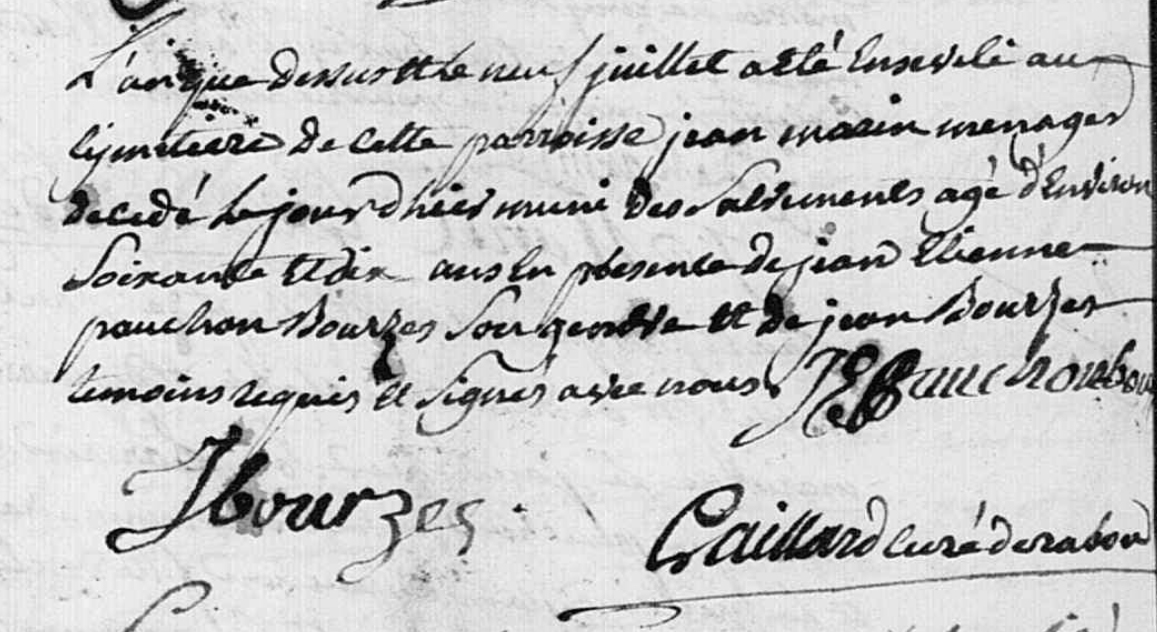 L'an que dessus et le neuf juillet a eté Enseveli au
cymetiere de cette parroisse jean marin menager
decedé le jour d'hier muni des Sacrements agé d'Environ
Soixante et dix ans En presence de jean Etienne
pauchon Bourzes Son gendre et de jean Bourzes
temoins requis et Signés avec nous. JE Pauchon bour
J bourzes.
Gaillard curé de